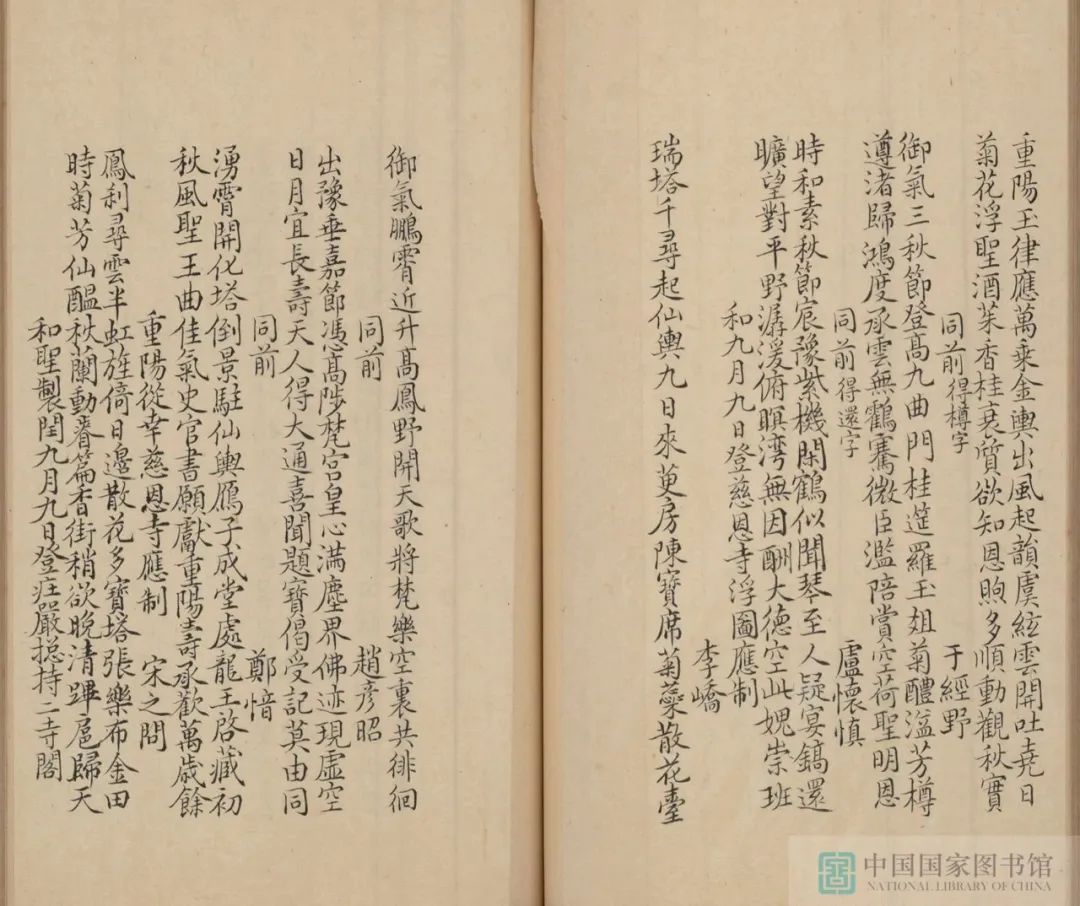 重陽玉律應萬乘金輿出風起韻虞絃雲開吐堯日
菊花浮聖酒茱香桂衰質欲知恩煦多順動觀秋實
同前得樽字 于經野
御氣三秋節登高九曲門桂筵羅玉俎菊醴溢芳樽
遵渚歸鴻度承雲無鶴騫微臣濫陪賞空荷聖明恩
同前得還字 盧懷慎
時和素秋節宸豫紫機閑鶴似聞琴至人疑宴鎬還
曠望對平野潺湲俯暝灣無因酬大德空此媿崇班
和九月九日登慈恩寺浮圖應制
李嶠
瑞塔千尋起仙輿九日來萸房陳寶席菊蘂散花臺
御氣鵬霄近升高鳳野開天歌將梵樂空裏共徘徊
同前 趙彦昭
出豫垂嘉節馮高陟梵宫皇心满塵界佛迹現虚空
日月宜長壽天人得大通喜聞題寶偈受記莫由同
同前 鄭愔
湧霄開化塔倒景駐仙輿鴈子成堂處龍王啓藏初
秋風聖王曲佳氣史官書願獻重陽壽承歡萬歳餘
重陽從幸慈恩寺應制 宋之問
鳳利尋雲半虹旌倚日邊散花多寶塔張樂布金田
時菊芳仙醖秋蘭動睿篇香街稍欲晚清蹕扈歸天
和聖製閏九月九日登莊嚴揔持二寺閣
中国国家图书馆
NATIONAL LIBRARY OF CHINA